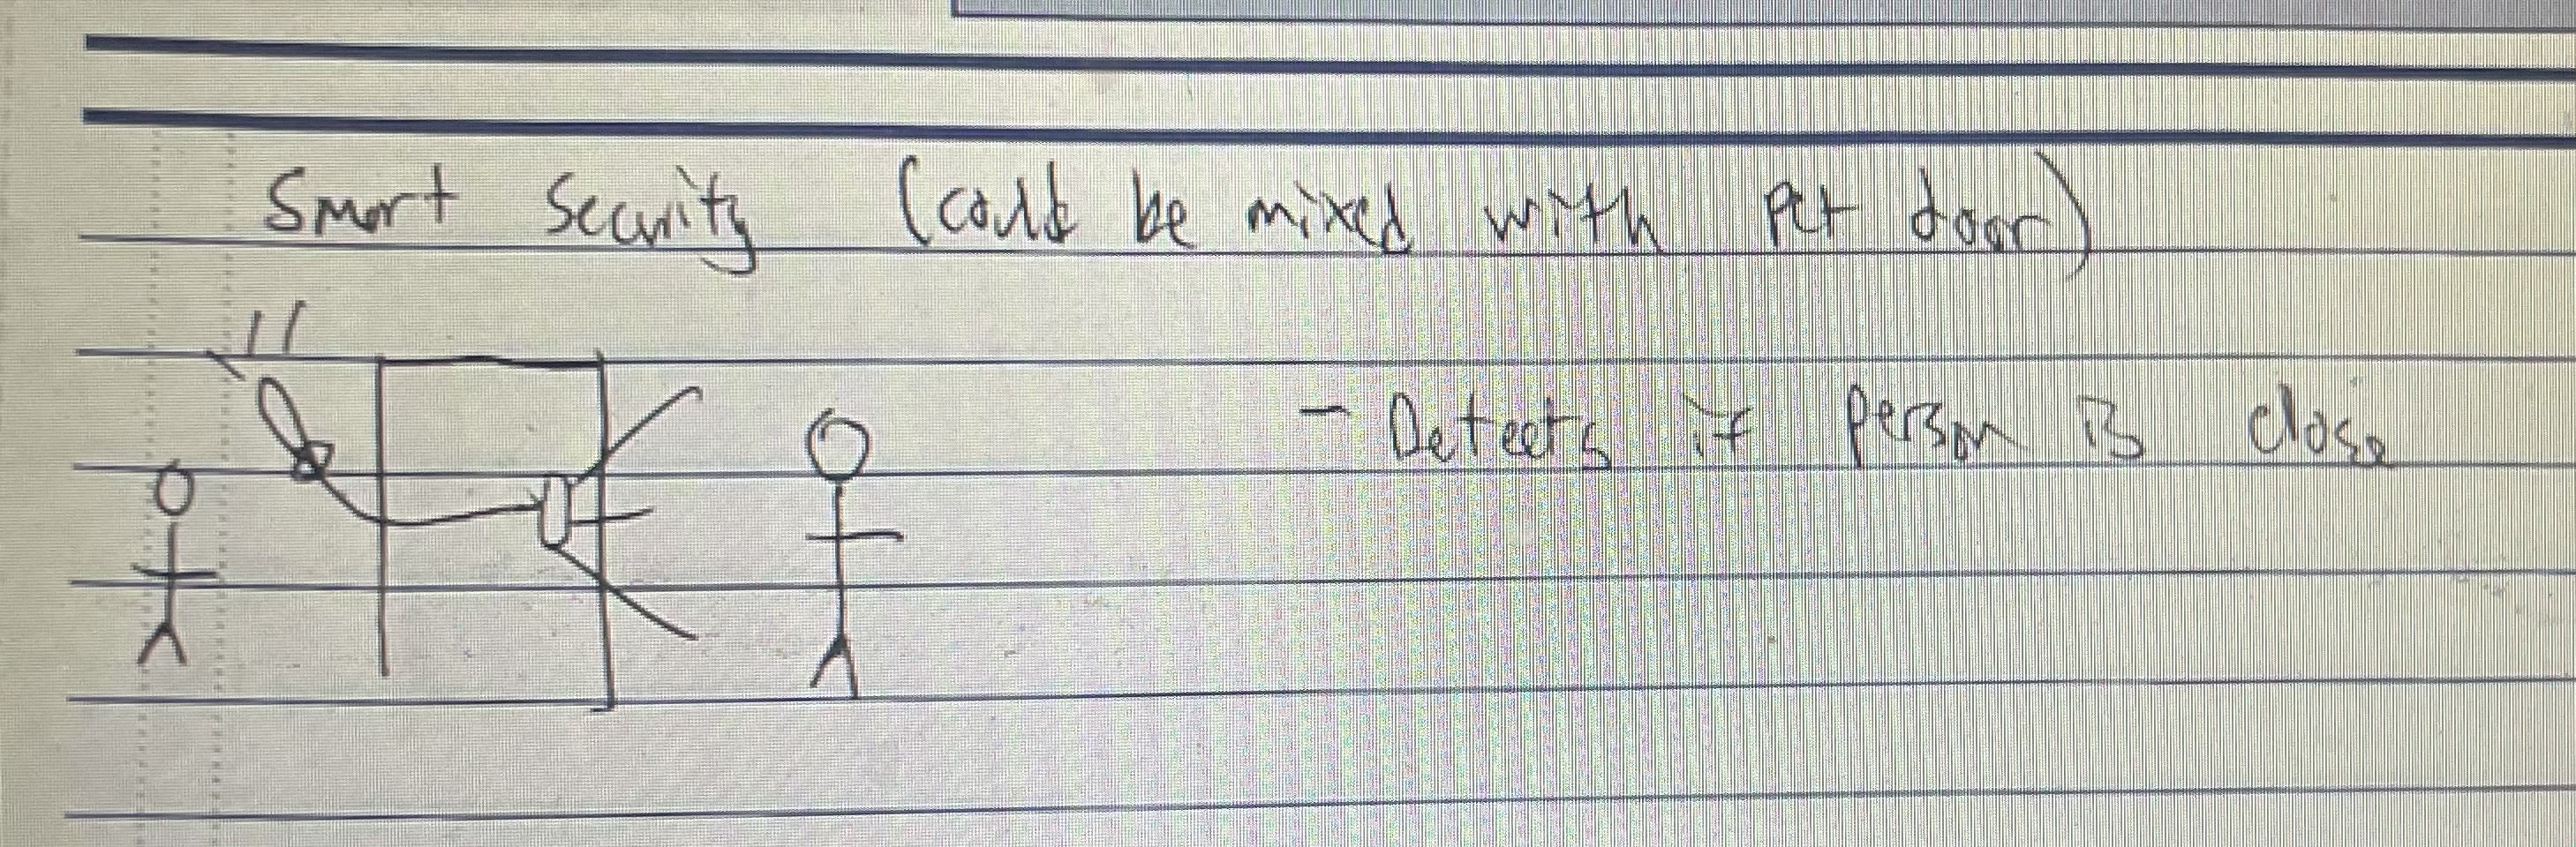 Smart Security (could be mixed with pet door)
- Detects if person is close